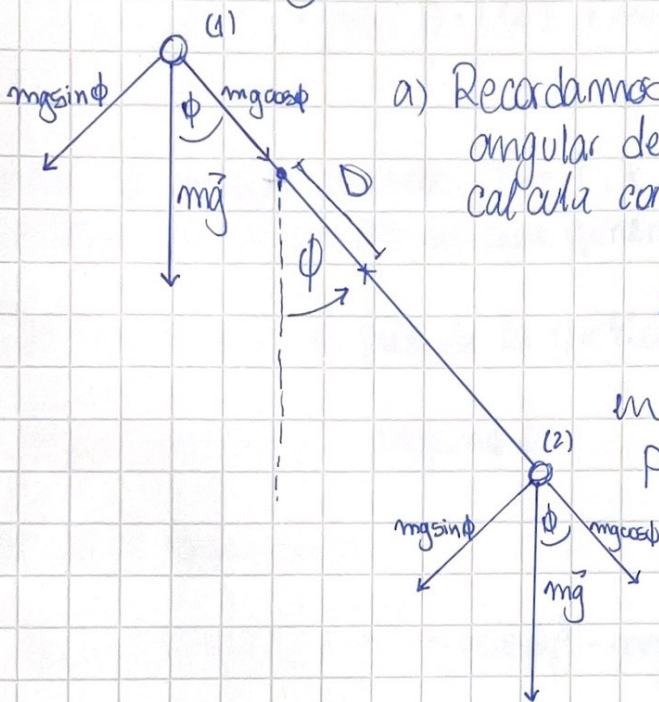 (1)
mgsinϕ
ϕ
mgcosϕ
mg⃗
D
ϕ
a) Recordamos
angular de
calcula con
(2)
mgsinϕ
ϕ
mgcosϕ
mg⃗